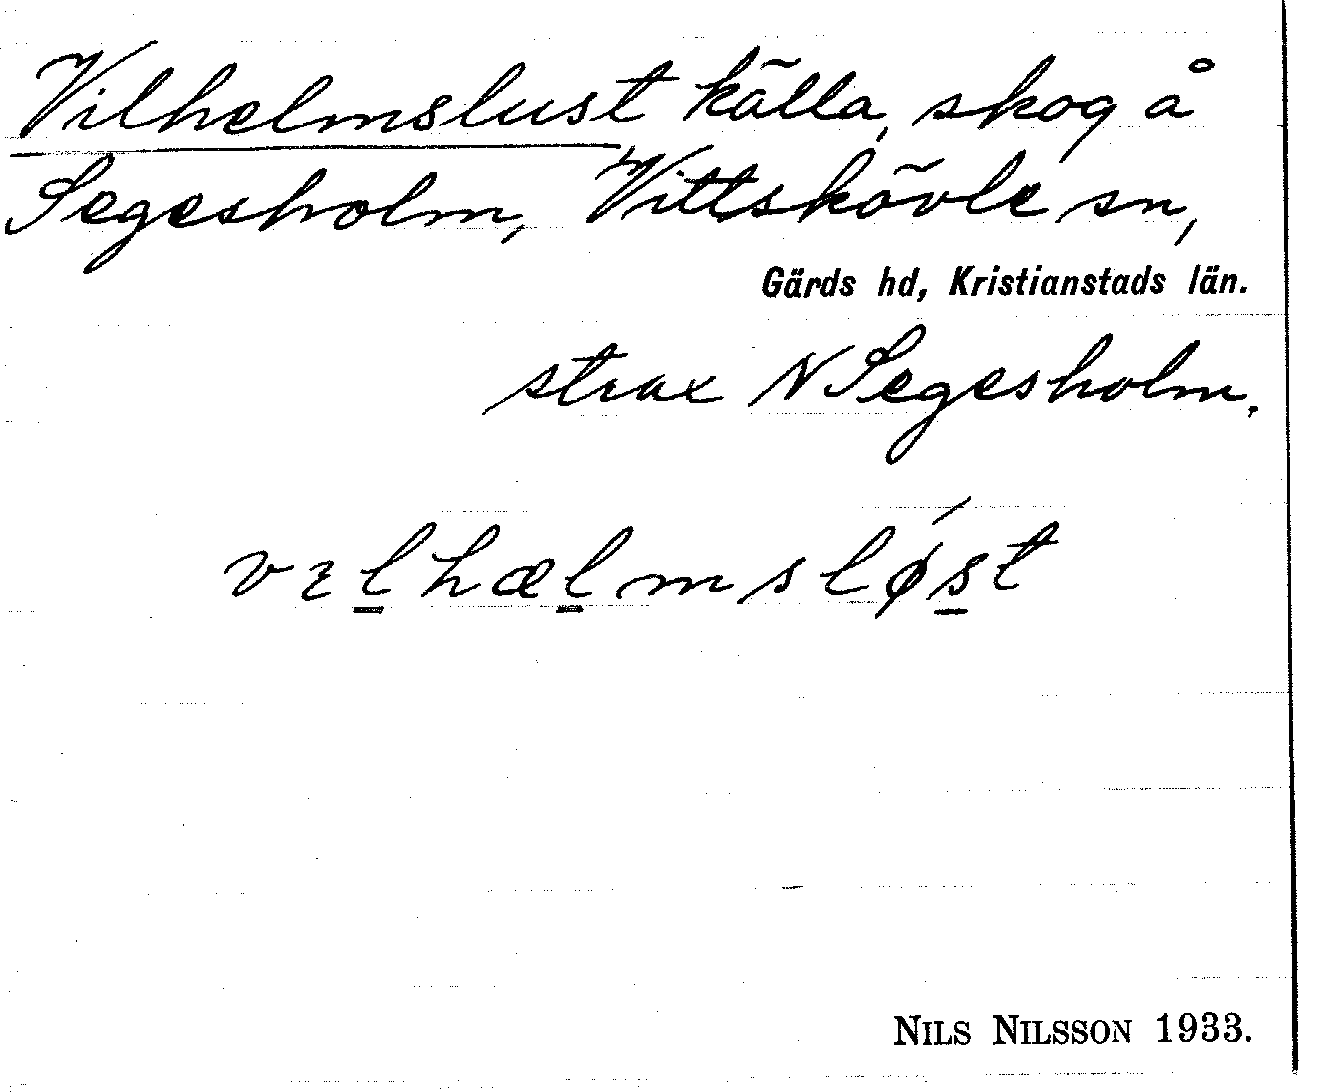 Vilhelmslust källa, skog å
Segesholm, Vittskövle sn,
Gärds hd, Kristianstads län.
strax N Segesholm.
vɪl̲hæl̲mslǿs̲t
NILS NILSSON 1933.